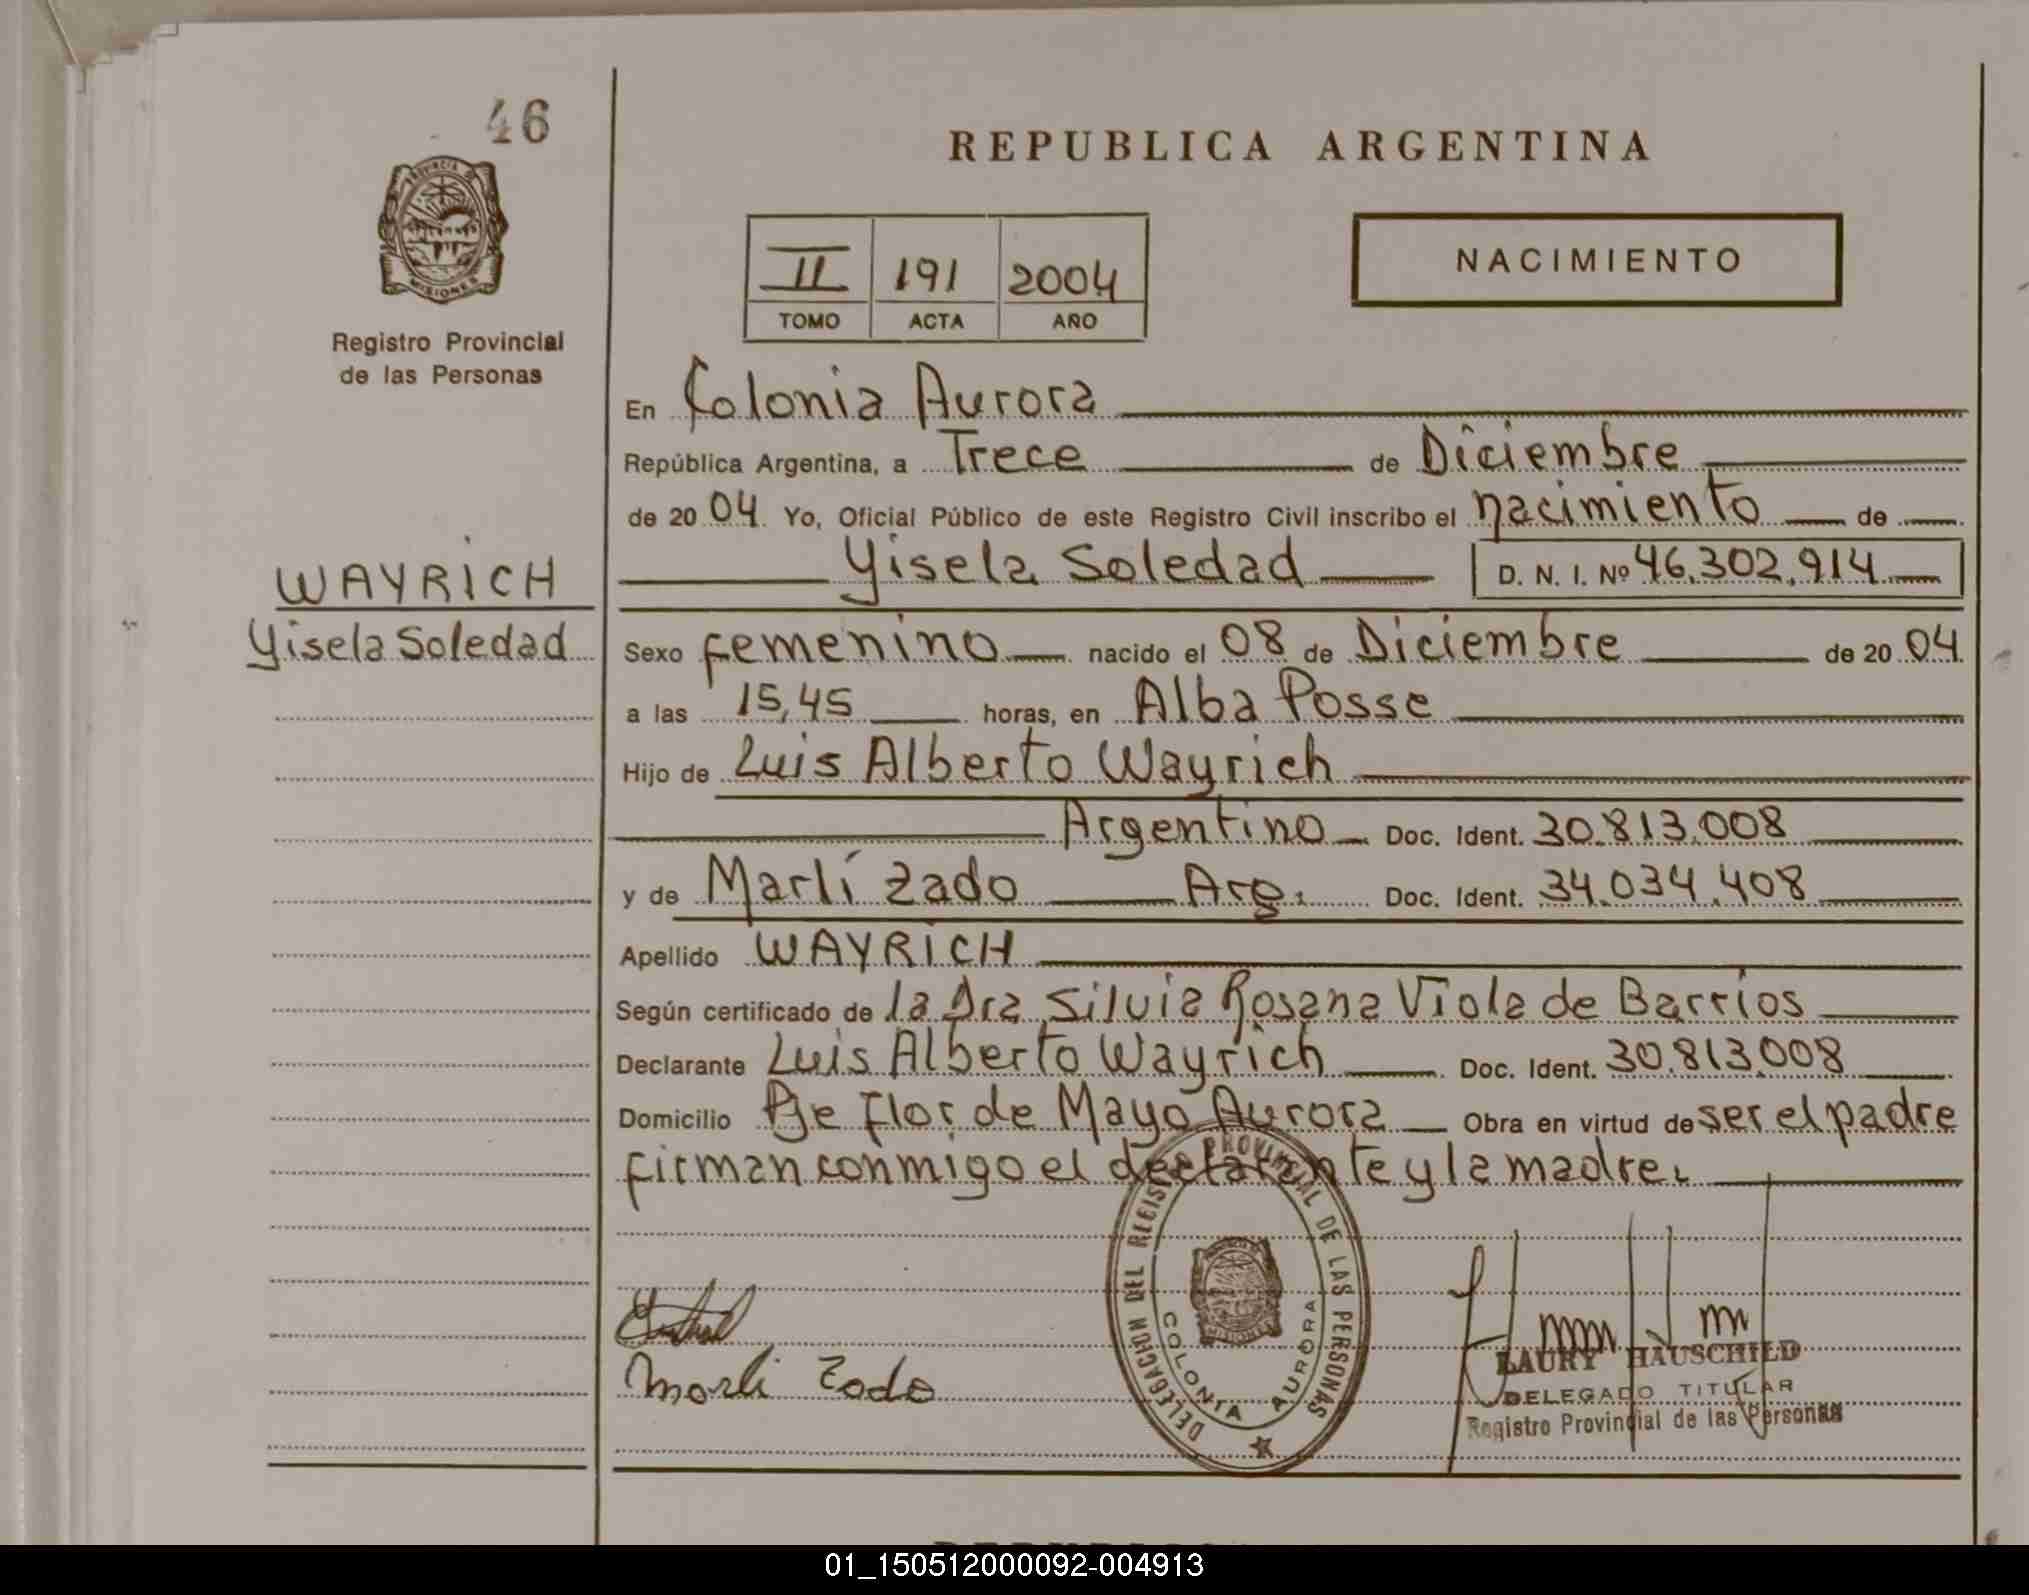 46
PROVINCIA DE
MISIONES
Registro Provincial
de las Personas
WAYRICH
Yisela Soledad
REPUBLICA ARGENTINA
II 191 2004
TOMO ACTA AÑO
NACIMIENTO
En Colonia Aurora
República Argentina, a Trece de Diciembre
de 20 04 Yo, Oficial Público de este Registro Civil inscribo el nacimiento de
Yisela Soledad D. N. I. Nº 46.302.914
Sexo femenino nacido el 08 de Diciembre de 20 04
a las 15,45 horas, en Alba Posse
Hijo de Luis Alberto Wayrich
Argentino Doc. Ident. 30.813.008
y de Marlí Zado Arg. Doc. Ident. 34.034.408
Apellido WAYRICH
Según certificado de la Dra Silvia Rosana Viola de Barrios
Declarante Luis Alberto Wayrich Doc. Ident. 30.813.008
Domicilio Pje Flor de Mayo Aurora Obra en virtud de ser el padre
firman conmigo el declarante y la madre.
DELEGACION DEL REGISTRO PROVINCIAL DE LAS PERSONAS
COLONIA AURORA
MISIONES
Marli Zado
LAURY HAUSCHILD
DELEGADO TITULAR
Registro Provincial de las Personas
01_150512000092-004913